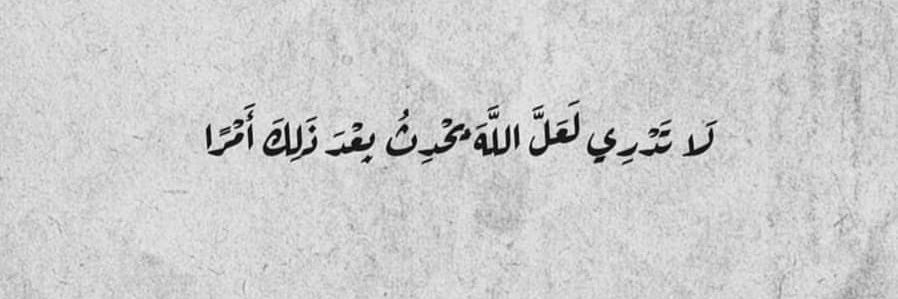 لَا تَدْرِي لَعَلَّ اللَّهَ يُحْدِثُ بَعْدَ ذَلِكَ أَمْرًا